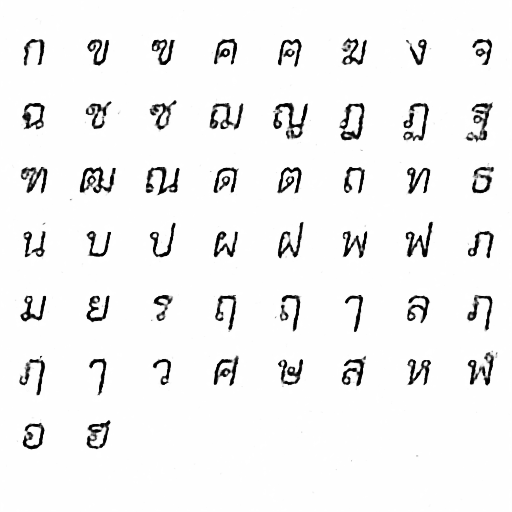 ก ข ฃ ค ฅ ฆ ง จ
ฉ ช ซ ฌ ญ ฎ ฏ ฐ
ฑ ฒ ณ ด ต ถ ท ธ
น บ ป ผ ฝ พ ฟ ภ
ม ย ร ฤ ฤ ๅ ล ภๅ
ภๅ ๅ ว ศ ษ ส ห ฬ
อ ฮ